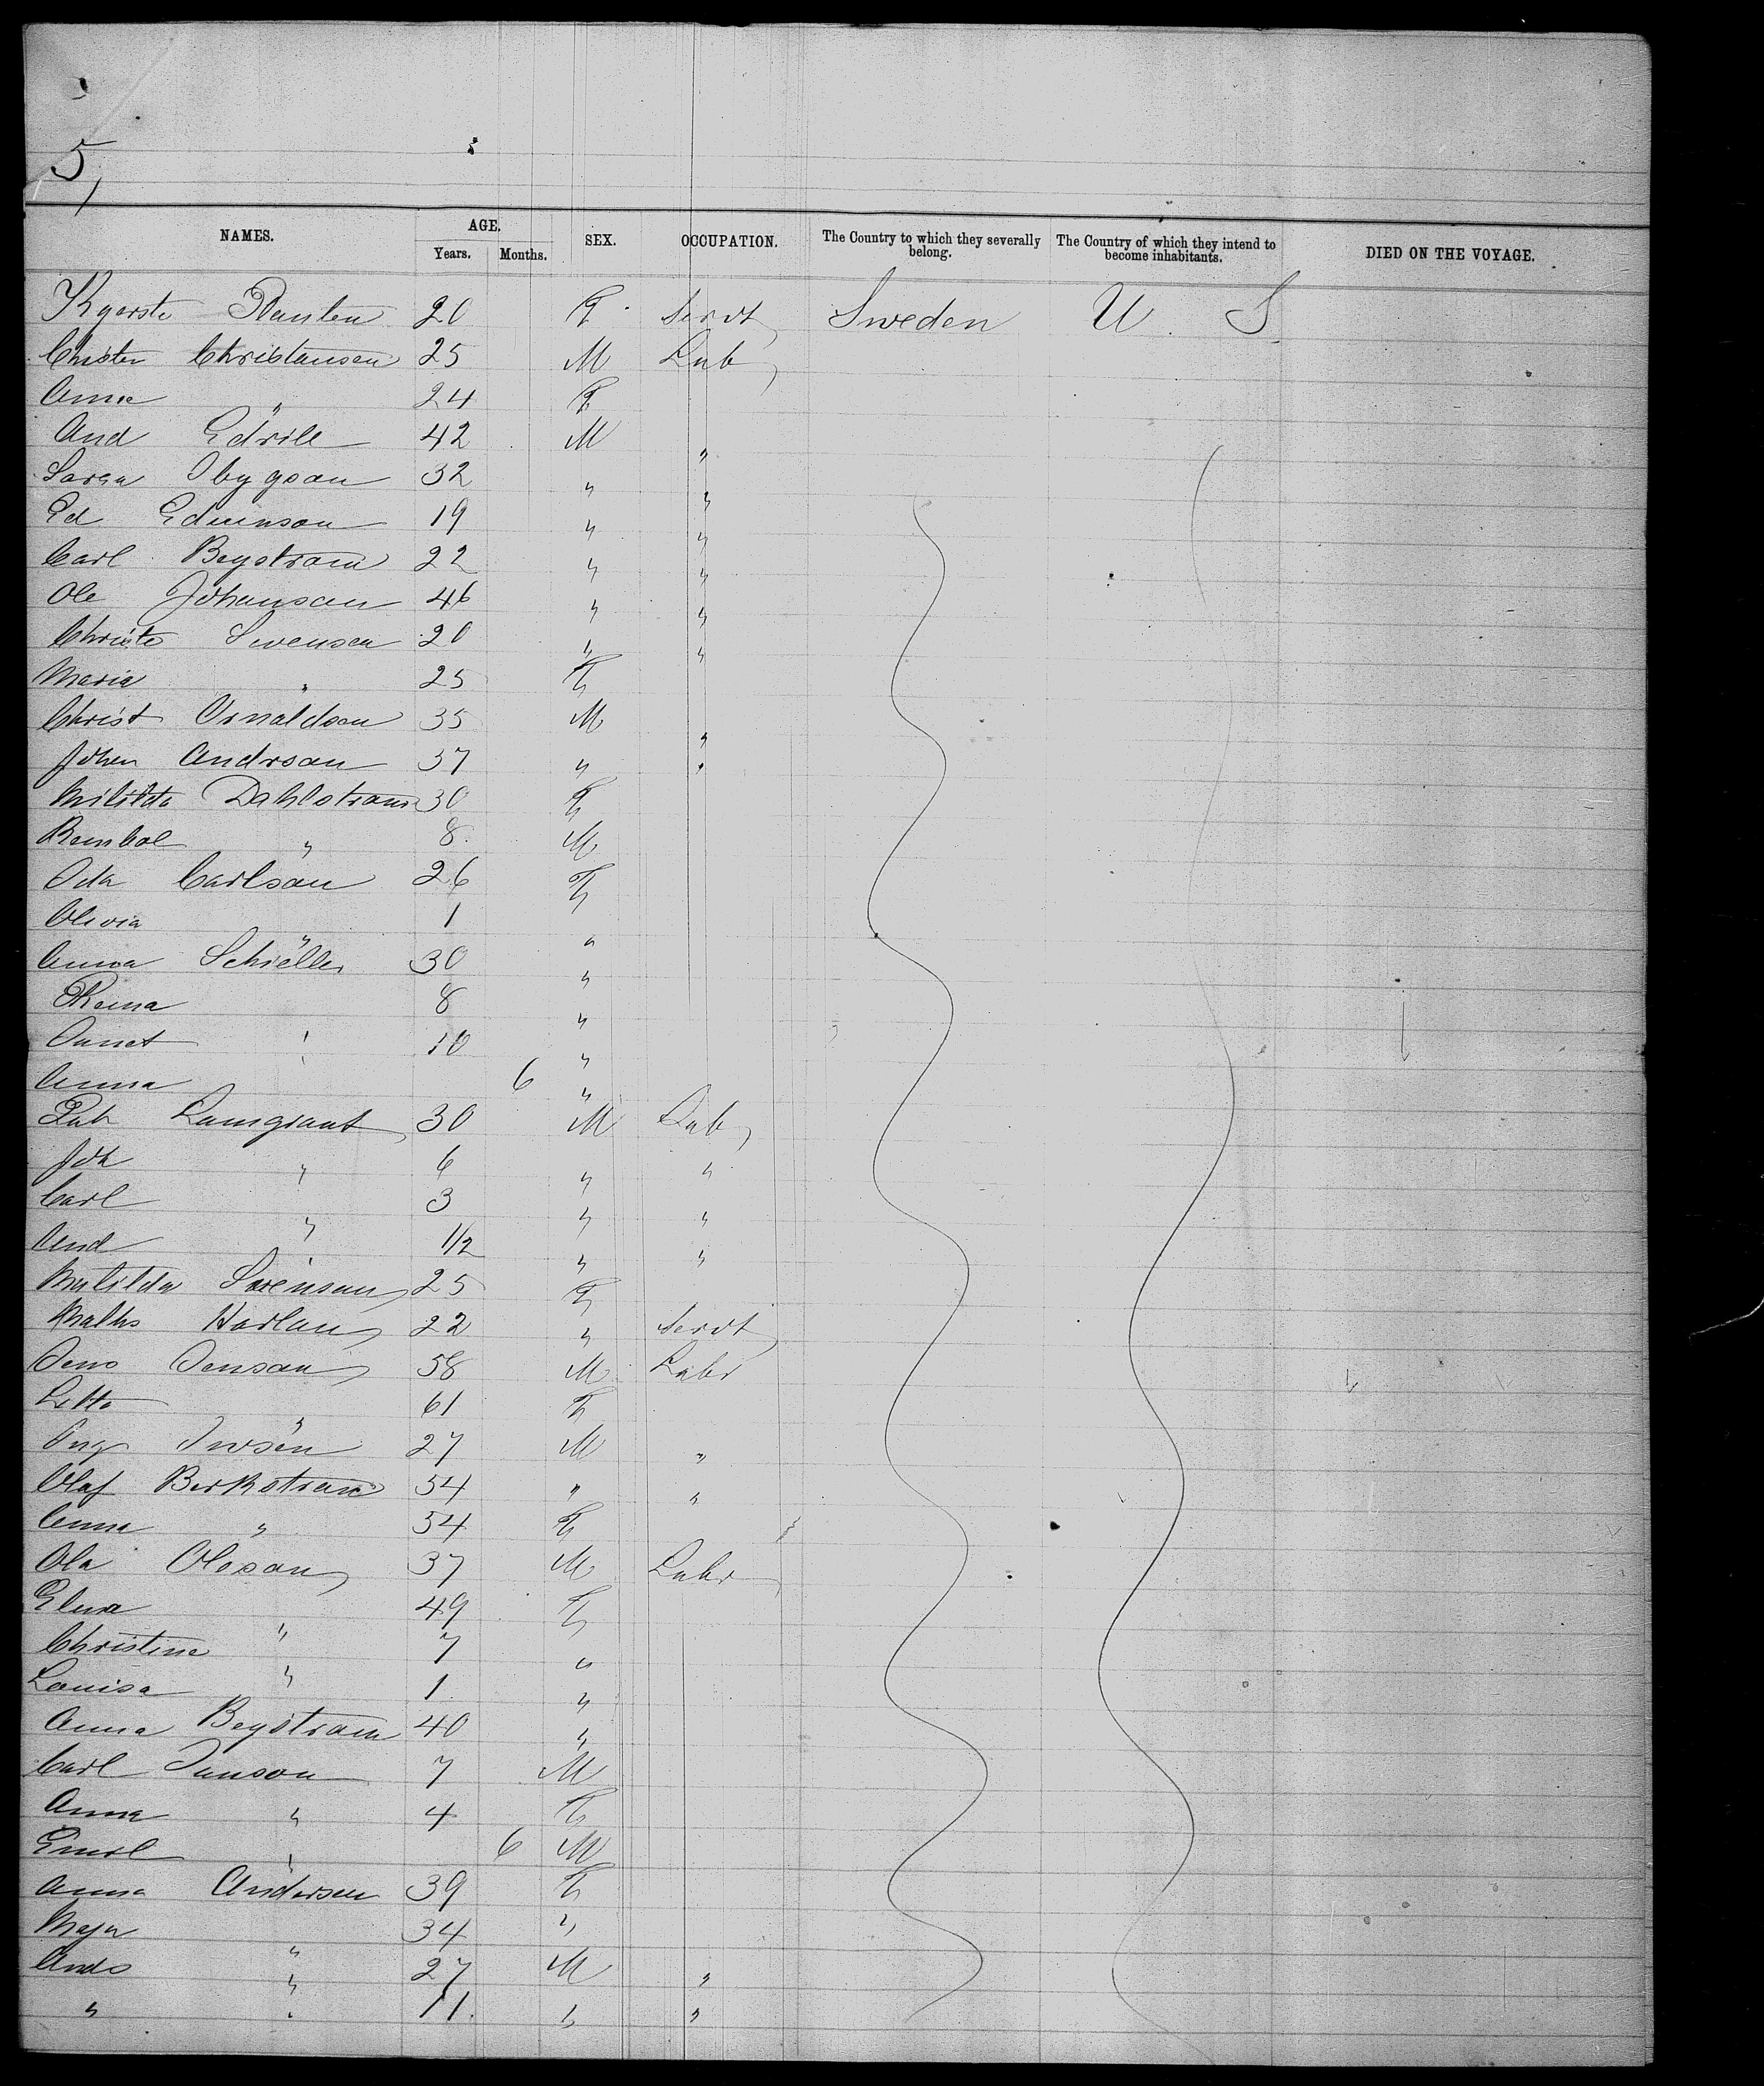 5,
NAMES. AGE. SEX. OCCUPATION. The Country to which they severally belong. The Country of which they intend to become inhabitants. DIED ON THE VOYAGE.
Years. Months.
Kyerste 20 F Servt Sweden U. S
Christen Christansen 25 M Lab
Anna " 24 F
And Edvile 42 M "
32 " "
Ed Edmnson 19 " "
Carl Beystrom 22 " "
Ole Johanson 46 " "
Christe Swensen 20 " "
Maria " 25 F
Christ Arnaldson 35 M "
Johan Andrson 37 " "
Militda Dahlstrom 30 F
" 8 M
Oda Carlson 26 F
Olivia " 1 "
Anna Schieller 30 "
8 "
" 10 "
Anna 6 "
30 M Lab
Joh " 6 " "
Carl " 3 " "
And " 1/2 " "
Matilda Swenson 25 F
Maths Harlan 22 " Servt
Jens Jenson 58 M Labr
Lotta " 61 F
Ing 27 M "
Olaf Berkstrom 54 " "
Anna " 54 F
Ola Oleson 37 M Labr
Elina " 49 F
Christine " 7 "
Louisa " 1 "
Anna Beystrom 40 "
Carl Janson 7 M
Anna " 4 F
Emil " 6 M
Anna Andersen 39 F
Maja " 34 "
Ands " 27 M "
" " 11 " "